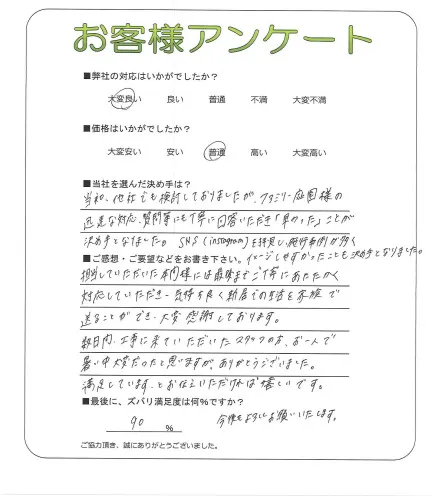 お客様アンケート
■弊社の対応はいかがでしたか？
大変良い 良い 普通 不満 大変不満
■価格はいかがでしたか？
大変安い 安い 普通 高い 大変高い
■当社を選んだ決め手は？
当初、他社でも検討しておりましたが、ファミリー庭園様の
迅速な対応、質問等にも丁寧に回答いただき「早かった」ことが
決め手となりました。SNS(instagram)を拝見し、施行事例が多く
イメージしやすかったことも決め手となりました。
■ご感想・ご要望などをお書き下さい。
担当していただいた 様には最後までご丁寧にあたたかく
対応していただき、気持ち良く新居での生活を家族で
送ることができ、大変感謝しております。
数日内、工事に来ていただいたスタッフの方、お一人で
暑い中大変だったと思いますが、ありがとうございました。
満足しています、とお伝えいただければ嬉しいです。
■最後に、ズバリ満足度は何％ですか？
90 %
今後ともよろしくお願いいたします。
ご協力頂き、誠にありがとうございました。